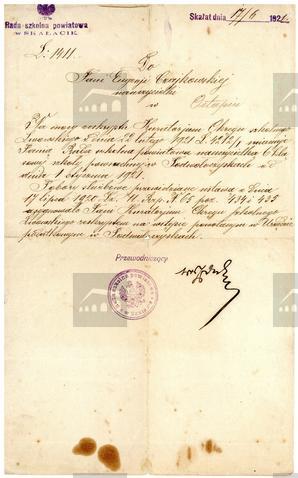 Rada szkolna powiatowa
W SKAŁACIE
Skałat dnia 17/6 1921.
L: 1411.
Do
Pani Eugenji
nauczycielki
w Ostapiu
Na mocy reskryptu Kuratorjum Okręgu szkolnego
Lwowskiego z dnia lutego 1921 L. mianuje
Panią Rada szkolna powiatowa nauczycielką 6 klas
szkoły powszechnej w Podwołoczyskach od
dnia 1 stycznia 1921.
Pobory służbowe przewidziane ustawą z dnia
17 lipca 1920 Dz. U. Rzp. N. 65 poz. 434 i 435
Pani Kuratorjum Okręgu szkolnego
Lwowskiego reskryptem na wstępie powołanym w Urzędzie
podatkowym w Podwołoczyskach.
Przewodniczący